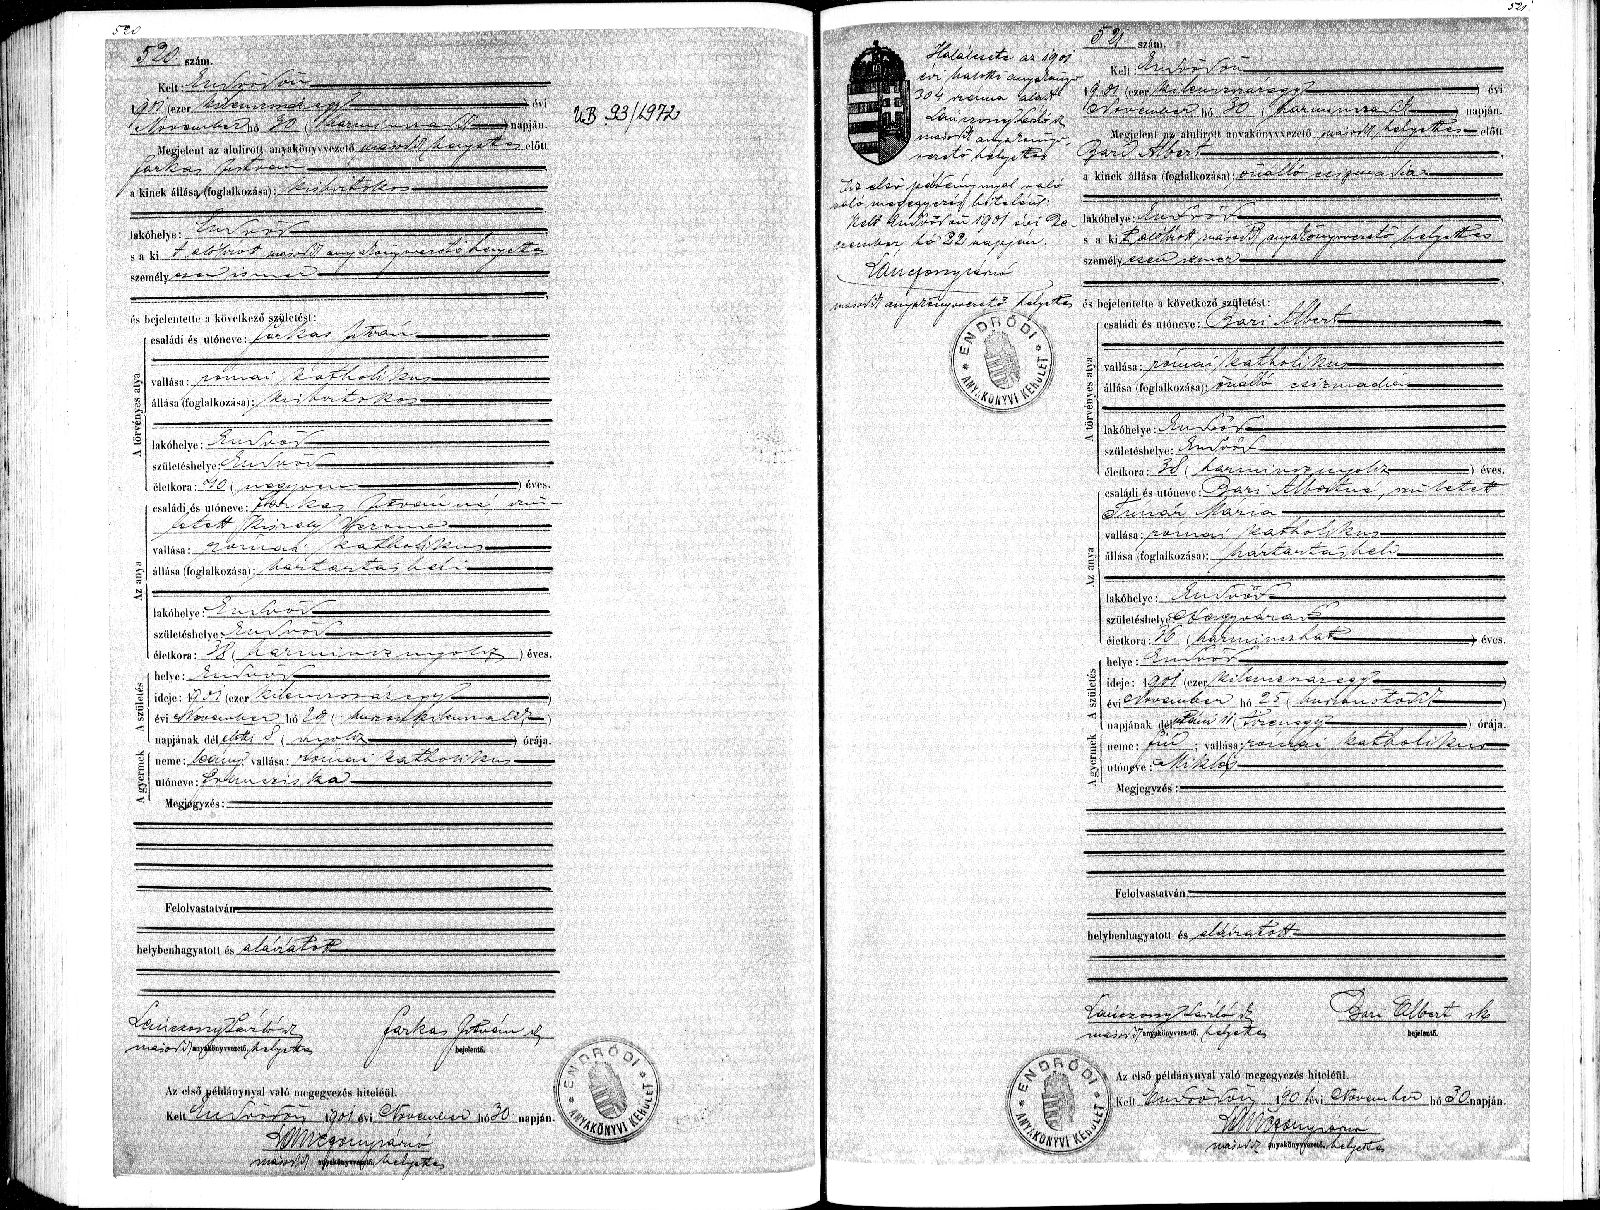 520
520 szám.
Kelt Endrődön
1901 (ezer kilenczszázegy) évi
November hó 30 (harminczadik) napján.
Megjelent az alulirott anyakönyvvezető másod helyettes előtt
Farkas István
a kinek állása (foglalkozása): kisbirtokos
lakóhelye: Endrőd
s a kit alólirott másod anyakönyvvezető helyettes
személyesen ismer
és bejelentette a következő születést:
A törvényes atya
családi és utóneve: Farkas István
vallása: római katholikus
állása (foglalkozása): kisbirtokos
lakóhelye: Endrőd
születéshelye: Endrőd
életkora: 40 (negyven) éves.
Az anya
családi és utóneve: Farkas Istvánné, szü-
letett Király Verona
vallása: római katholikus
állása (foglalkozása): háztartásbeli
lakóhelye: Endrőd
születéshelye: Endrőd
életkora: 38 (harmincznyolcz) éves.
A születés
helye: Endrőd
ideje: 1901 (ezer kilenczszázegy)
évi November hó (huszonkilenczedik)
napjának délelőtti 8 (nyolcz) órája.
A gyermek
neme: leány; vallása: római katholikus
utóneve: Francziska
Megjegyzés:
Felolvastatván
helybenhagyatott és aláiratott
Lánczonyi László
másod anyakönyvvezető helyettes
Farkas István sk
bejelentő.
Az első példánynyal való megegyezés hiteléül.
Kelt Endrődön, 1901 évi November hó 30 napján.
másod anyakönyvvezető helyettes
ENDRŐDI
ANYAKÖNYVI KERÜLET
UB 93/1972
521
Halálesete az 1901
évi halotti anyakönyv
304 száma alatt
másod anyakönyv-
vezető helyettes
Az első példánynyal való
való megegyezés hiteléül:
Kelt Endrődön 1901 évi De-
czember hó 22 napján.
másod anyakönyvvezető helyettes
ENDRŐDI
ANYAKÖNYVI KERÜLET
521 szám.
Kelt Endrődön
1901 (ezer kilenczszázegy) évi
November hó 30 (harminczadik) napján.
Megjelent az alulirott anyakönyvvezető másod helyettes előtt
Bari Albert
a kinek állása (foglalkozása): önálló csizmadia
lakóhelye: Endrőd
s a kit alólirott másod anyakönyvvezető helyettes
személyesen ismer
és bejelentette a következő születést:
A törvényes atya
családi és utóneve: Bari Albert
vallása: római katholikus
állása (foglalkozása): önálló csizmadia
lakóhelye: Endrőd
születéshelye: Endrőd
életkora: 38 (harmincznyolcz) éves.
Az anya
családi és utóneve: Bari Albertné, született
Mária
vallása: római katholikus
állása (foglalkozása): háztartásbeli
lakóhelye: Endrőd
születéshelye: Nagyvárad
életkora: 36 (harminczhat) éves.
A születés
helye: Endrőd
ideje: 1901 (ezer kilenczszázegy)
évi November hó 25 (huszonötödik)
napjának délutáni 11 (tizenegy) órája.
A gyermek
neme: fiú; vallása: római katholikus
utóneve: Miklós
Megjegyzés:
Felolvastatván
helybenhagyatott és aláiratott
Lánczonyi László
másod anyakönyvvezető helyettes
Bari Albert sk
bejelentő.
ENDRŐDI
ANYAKÖNYVI KERÜLET
Az első példánynyal való megegyezés hiteléül.
Kelt Endrődön, 1901 évi November hó 30 napján.
másod anyakönyvvezető helyettes